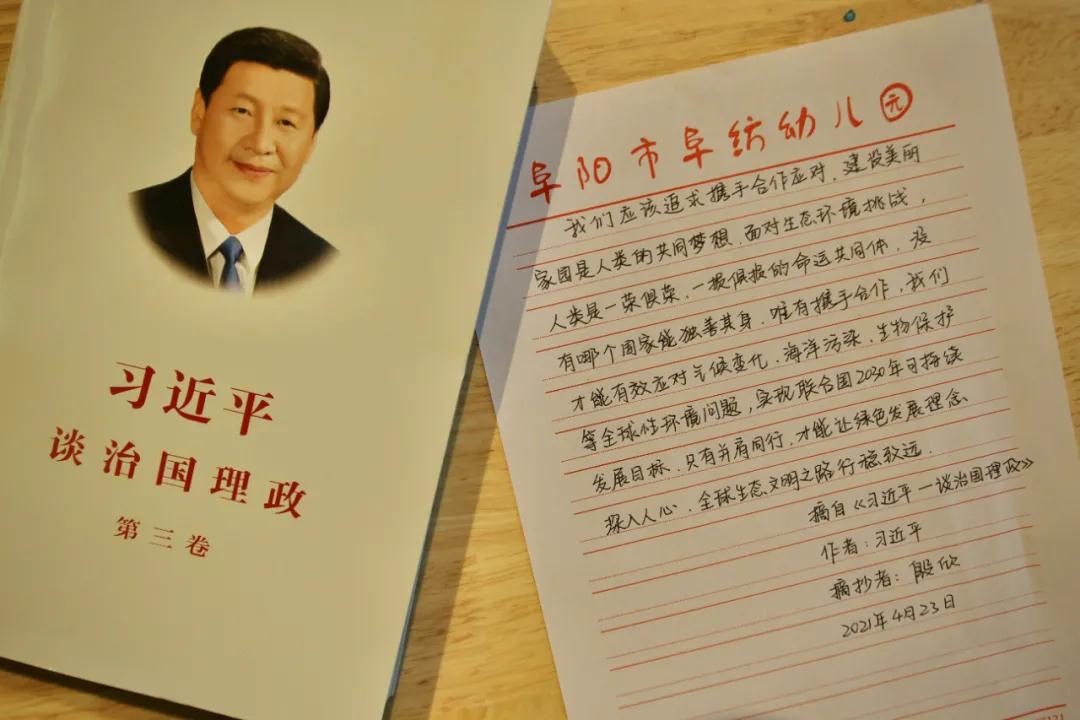 习近平
谈治国理政
第三卷
阜阳市阜纺幼儿园
我们应该追求携手合作应对，建设美丽
家园是人类的共同梦想，面对生态环境挑战，
人类是一荣俱荣，一损俱损的命运共同体，没
有哪个国家能独善其身，唯有携手合作，我们
才能有效应对气候变化、海洋污染、生物保护
等全球性环境问题，实现联合国2030年可持续
发展目标，只有并肩同行，才能让绿色发展理念
深入人心、全球生态文明之路行稳致远．
摘自《习近平－谈治国理政》
作者：习近平
摘抄者：殷欣
2021年4月23日